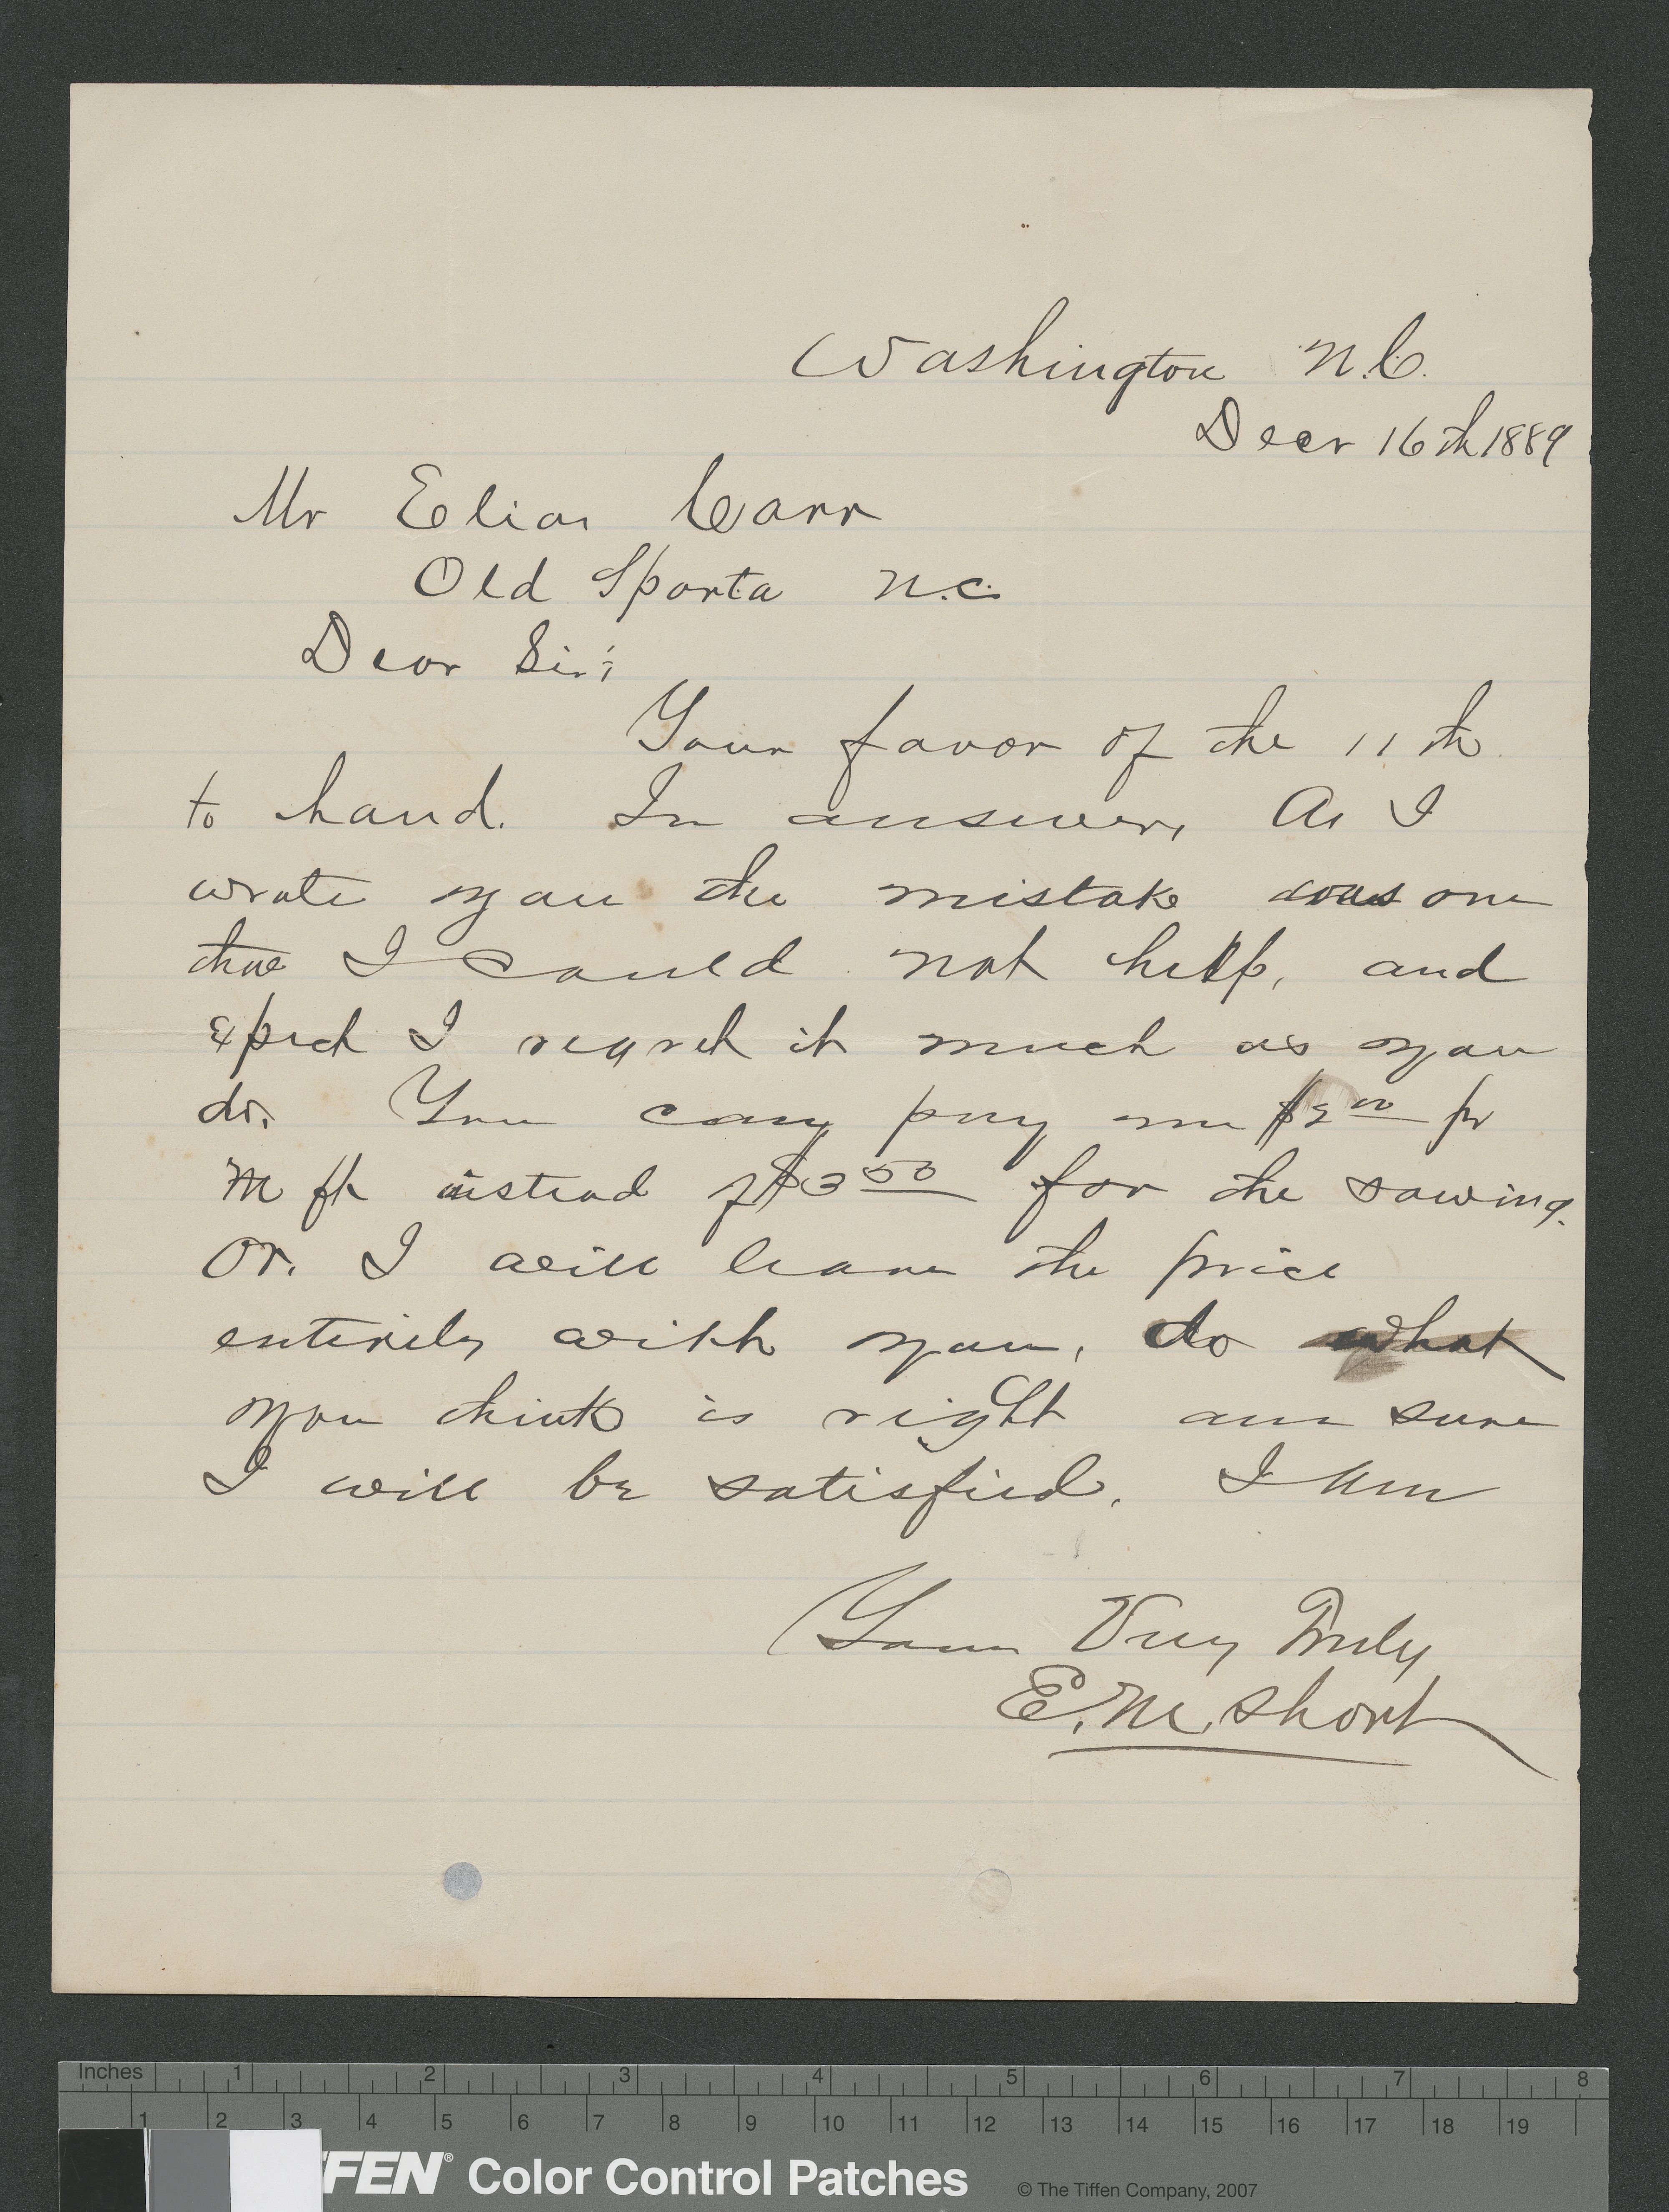 Washington N.C.
Decr 16th 1889
Mr Elias Carr
Old Sparta N.C.
Dear Sir:
Your favor of the 11th
to hand. In answer, As I
wrote you the mistake was one
that I could not help, and
expect I regret it much as you
do. You can pay me $2.00 pr
M ft instead of $3.50 for the sawing.
or. I will leave the price
entirely with you, do what
you think is right am sure
I will be satisfied. I am
Yours Very Truly
E. M. Short
Inches 1 2 3 4 5 6 7 8
1 2 3 4 5 6 7 8 9 10 11 12 13 14 15 16 17 18 19
FFEN® Color Control Patches © The Tiffen Company, 2007